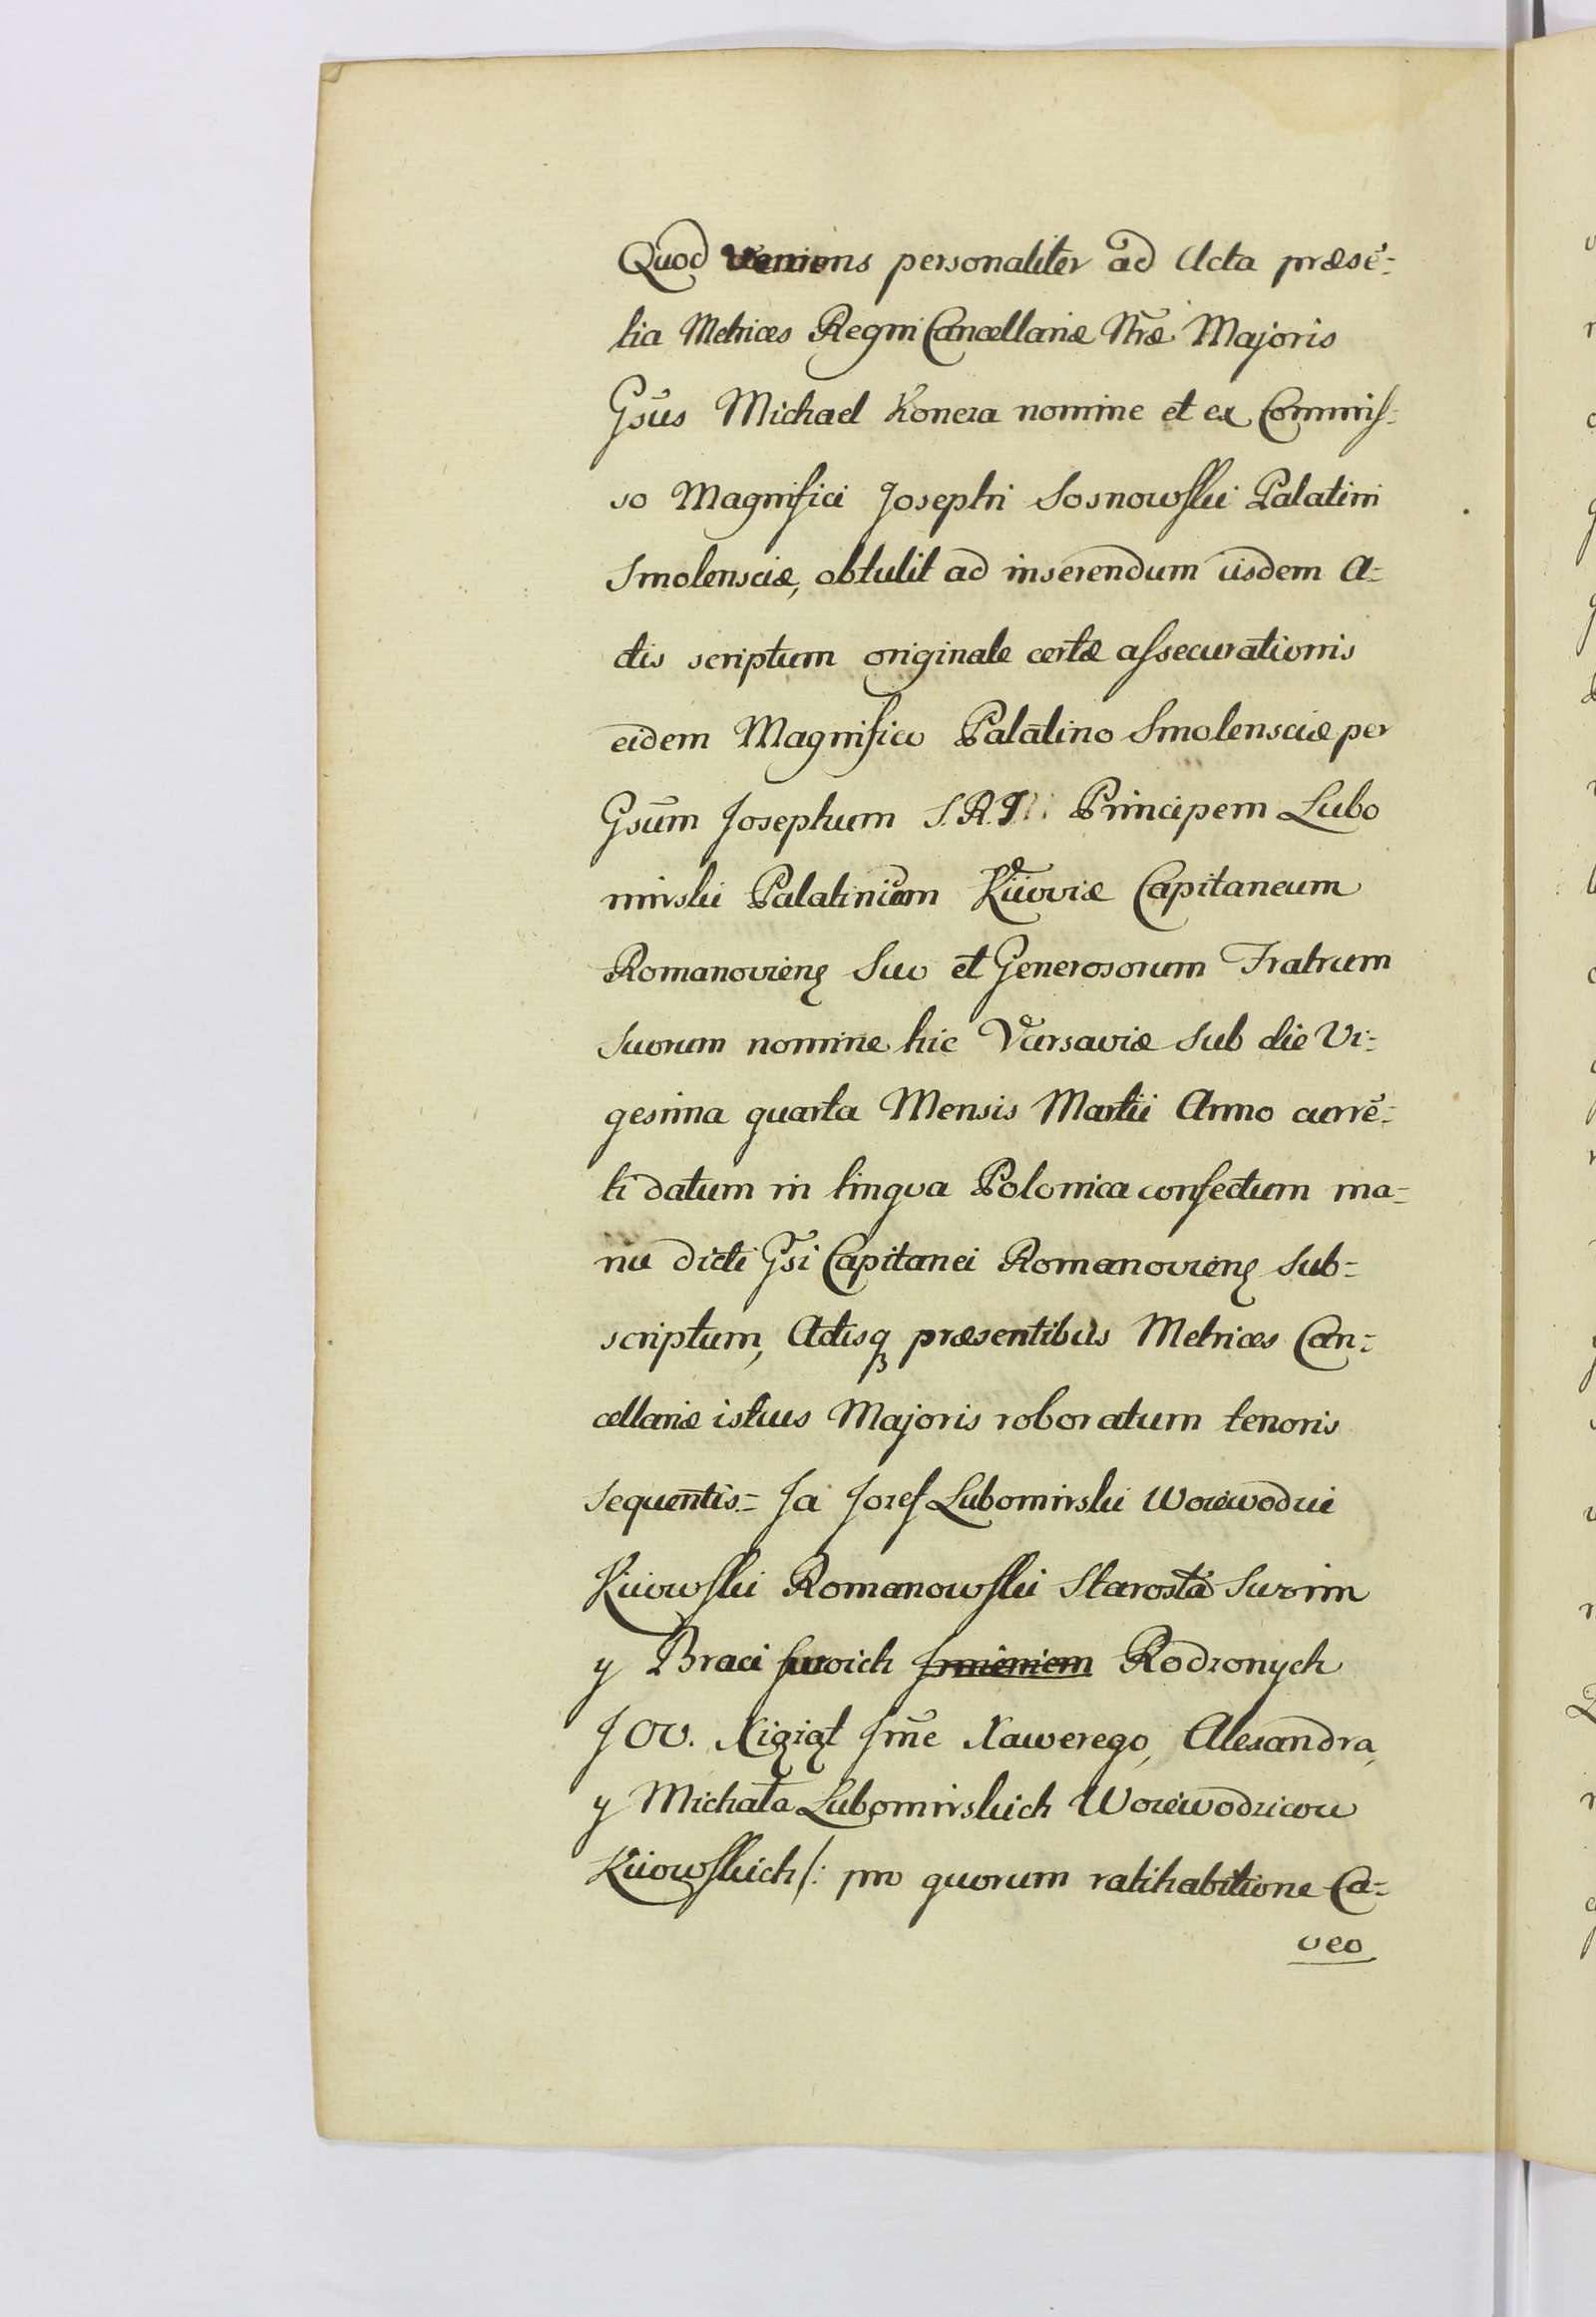 Quod veniens personaliter ad Acta præsē-
tia Metrices Regni Cancellariæ Nr̃æ Majoris
Gsũs Michael Konera nomine et ex Commiſ-
so Magnifici Josephi Sosnowſki Palatini
Smolensciæ, obtulit ad inserendum iisdem A-
ctis scriptum originale certæ aſsecurationis
eidem Magnifico Palatino Smolensciæ per
Gsũm Josephum S.R.I. Principem Lubo
mirski Palatinidem Kijoviæ Capitaneum
Romanovienę Suo et Generosorum Fratrum
Suorum nomine hic Varsaviæ sub die Vi-
gesima quarta Mensis Martii Anno currē-
ti datum in lingva Polonica confectum ma-
nu dicti Gs̃i Capitanei Romanovienę sub-
scriptum, Actisq præsentibus Metrices Can-
cellariæ istius Majoris roboratum tenoris
sequentis = Ja Jozef Lubomirski Woiewodzic
Kijowſki Romanowſki Starosta Swoim
y Braci swoich Jmieniem Rodzonych
J OO. Xiążąt Jm̃c Xawerego, Alexandra,
y Michała Lubomirskich Woiewodzicow
Kijowſkich /: pro quorum ratihabitione Ca-
veo